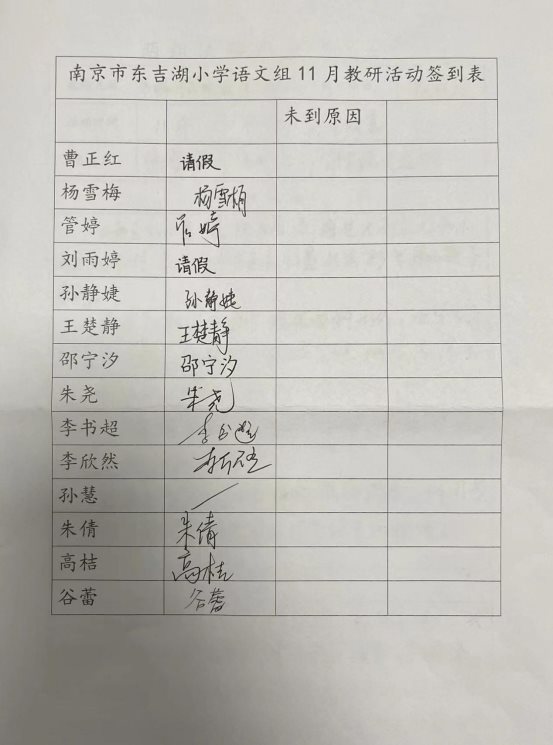 南京市东吉湖小学语文组11月教研活动签到表
未到原因
曹正红 请假
杨雪梅 杨雪梅
管婷 管婷
刘雨婷 请假
孙静婕 孙静婕
王楚静 王楚静
邵宁汐 邵宁汐
朱尧 朱尧
李书超 李书超
李欣然 李欣然
孙慧
朱倩 朱倩
高桔 高桔
谷蕾 谷蕾